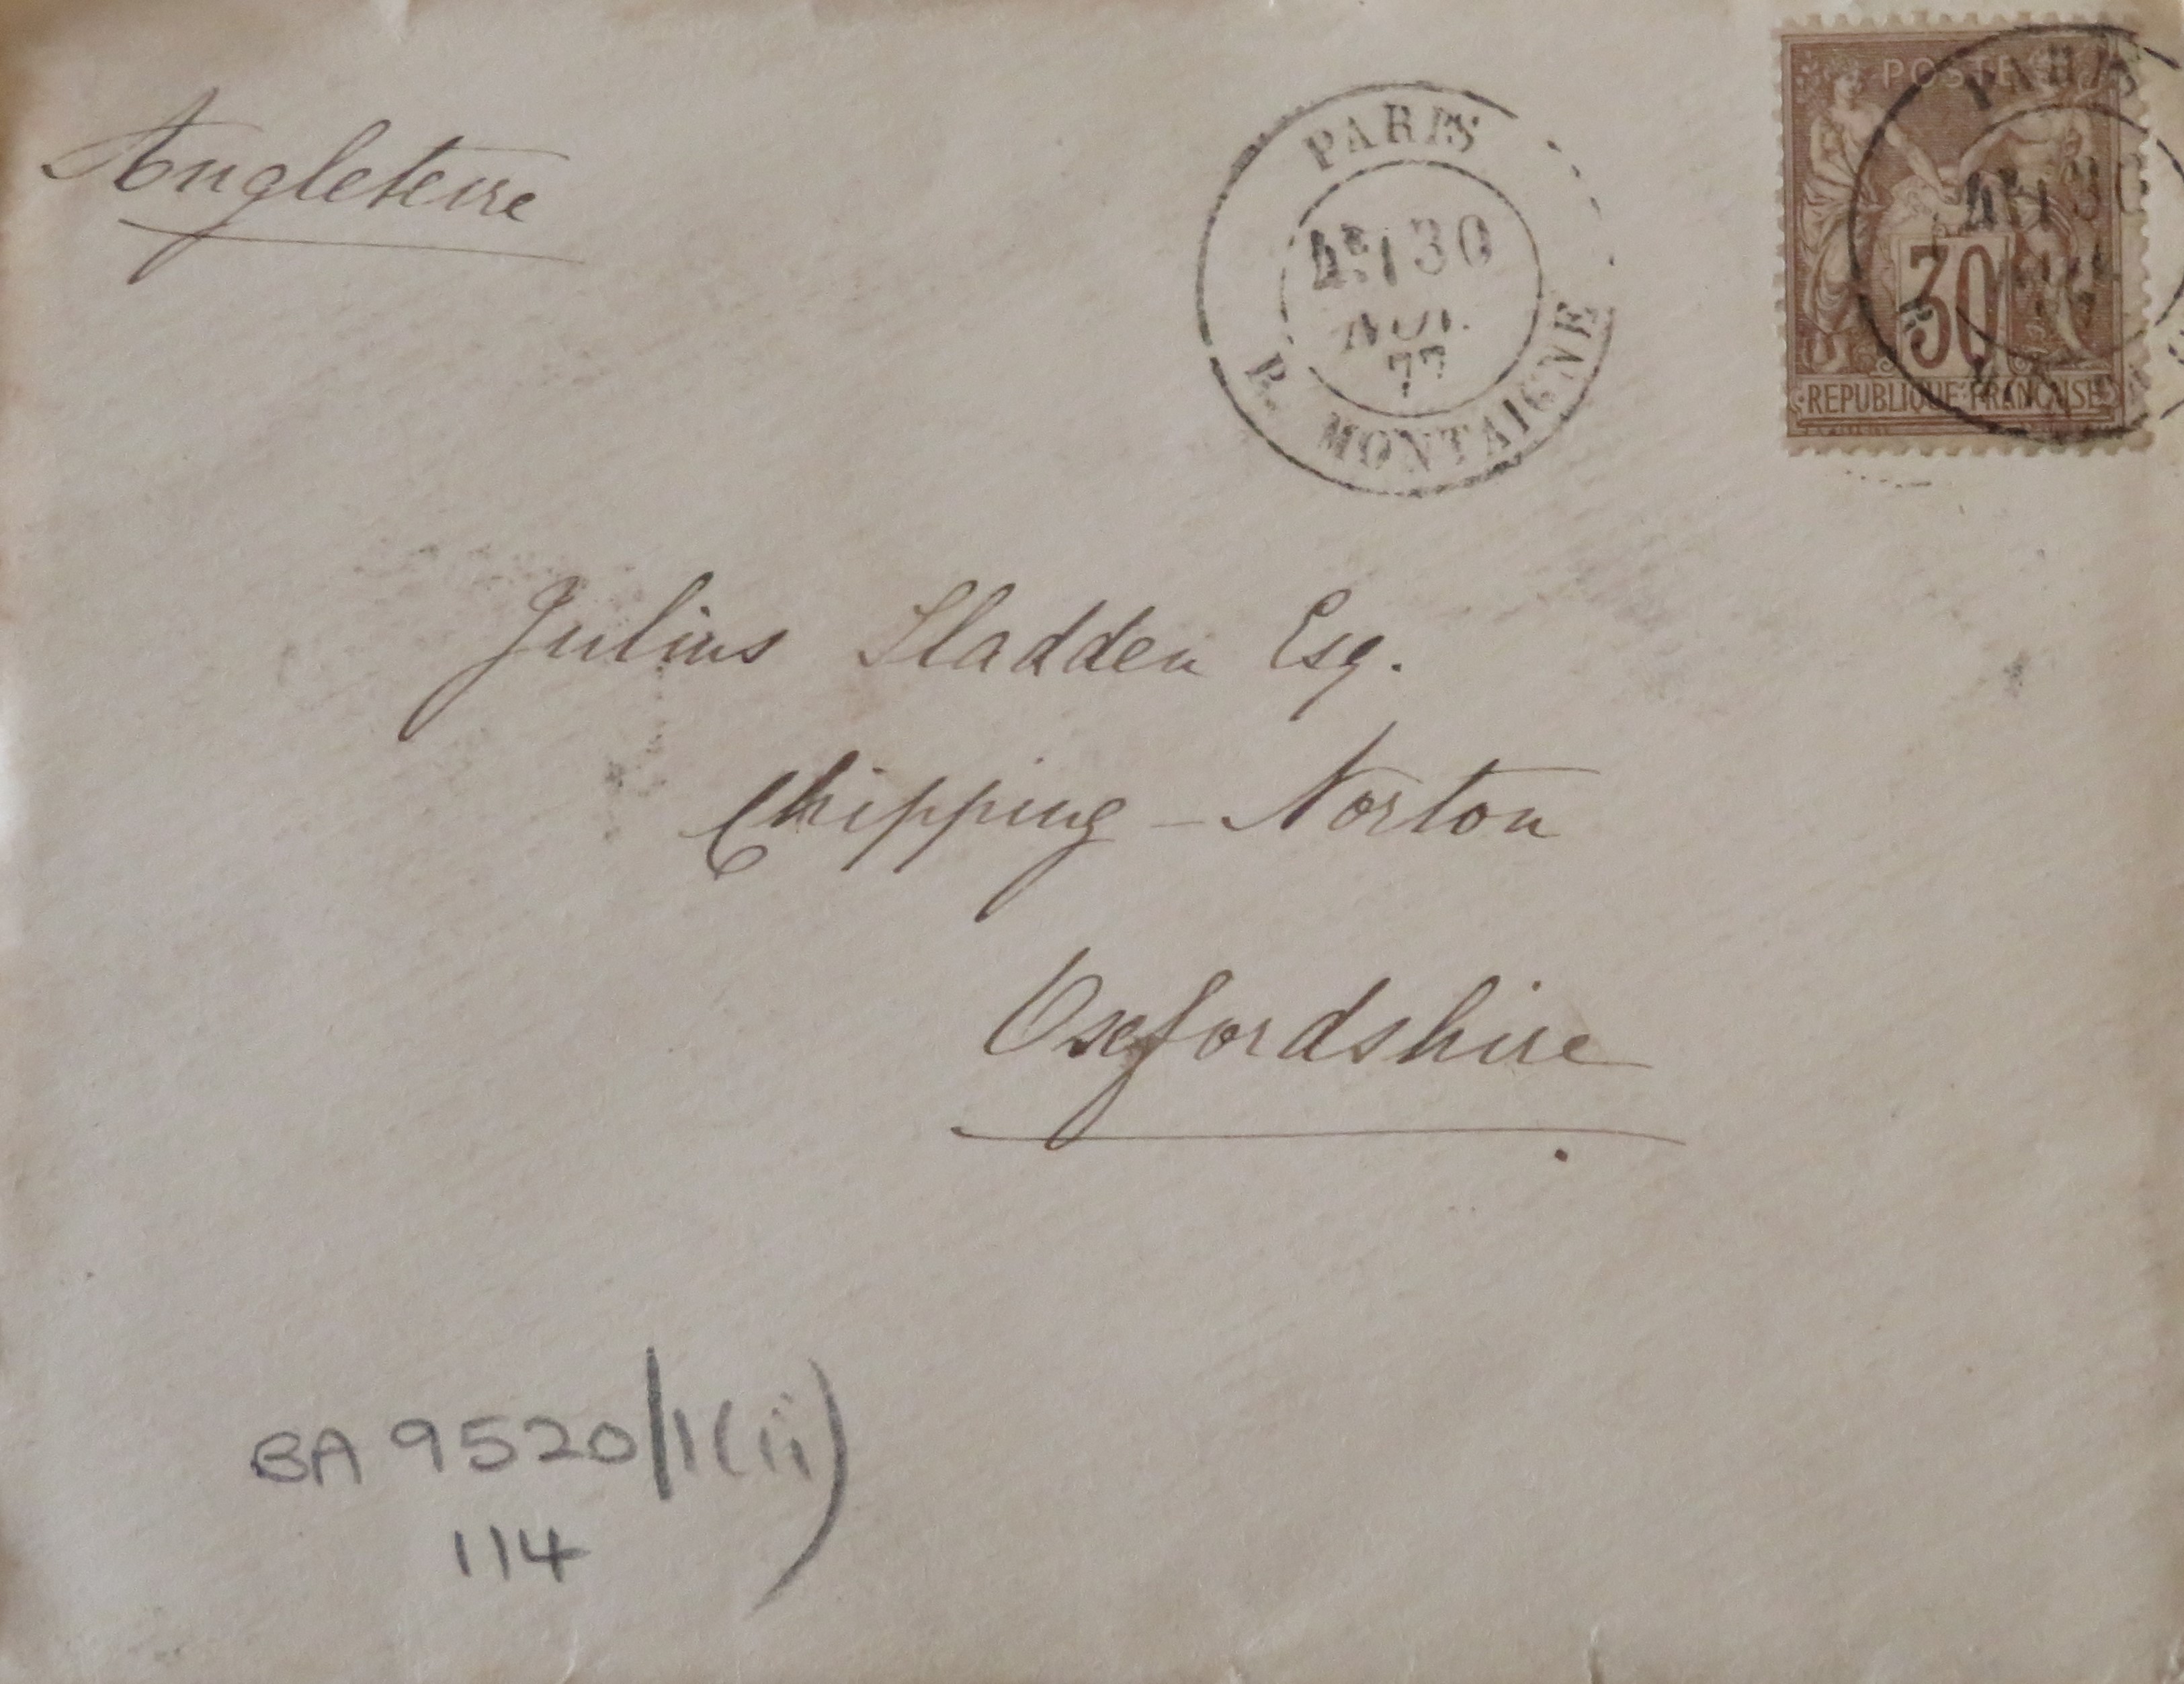 Angleterre
PARIS
4E/ 30
77
R. MONTAIGNE
POSTES
PARIS
30
REPUBLIQUE FRANÇAISE
Julius Sladden Esq.
Chipping - Norton
Oxfordshire
BA 9520/1(ii)
114